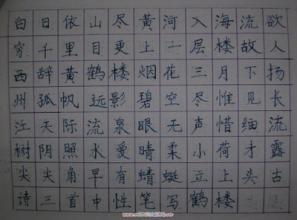 白日依山尽黄河入海流欲
穷千里目更上一层楼故人
西辞黄鹤楼烟花三月下扬
州孤帆远影碧空尽惟见长
江天际流泉眼无声惜细流
树阴照水爱晴柔小荷才露
尖尖角早有蜻蜓立上头古
诗三首中性笔写鹤楼